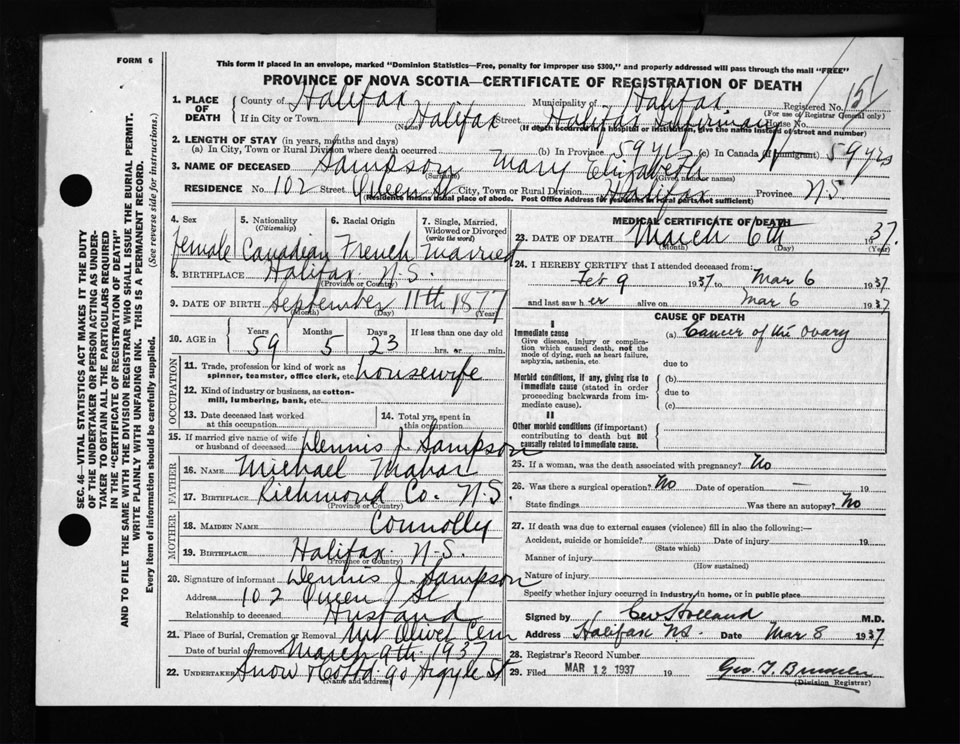 FORM 6
This form if placed in an envelope, marked "Dominion Statistics—Free, penalty for improper use $300," and properly addressed will pass through the mail "FREE"
PROVINCE OF NOVA SCOTIA—CERTIFICATE OF REGISTRATION OF DEATH
1. PLACE OF DEATH County of Halifax Municipality of Halifax Registered No. 151
(For use of Registrar General only)
If in City or Town Halifax Street Halifax Infirmary House No.
(Name) (If death occurred in a hospital or institution, give the name instead of street and number)
2. LENGTH OF STAY (in years, months and days)
(a) In City, Town or Rural Division where death occurred (b) In Province 59 yrs (c) In Canada (if immigrant) 59 yrs
3. NAME OF DECEASED Sampson Mary Elizabeth
(Surname) (Given name or names)
RESIDENCE No. 102 Street Queen St City, Town or Rural Division Halifax Province N.S
(Residence means usual place of abode. Post Office Address for residents in rural parts not sufficient)
4. Sex female
5. Nationality (Citizenship) Canadian
6. Racial Origin French
7. Single, Married, Widowed or Divorced (write the word) Married
8. BIRTHPLACE Halifax N.S.
(Province or Country)
9. DATE OF BIRTH September 11th 1877
(Month) (Day) (Year)
10. AGE in Years 59 Months 5 Days 23 If less than one day old hrs. or min.
OCCUPATION
11. Trade, profession or kind of work as spinner, teamster, office clerk, etc. housewife
12. Kind of industry or business, as cotton-mill, lumbering, bank, etc.
13. Date deceased last worked at this occupation
14. Total yrs. spent in this occupation
15. If married give name of wife or husband of deceased Dennis J. Sampson
FATHER
16. NAME Michael Mahar
17. BIRTHPLACE Richmond Co. N.S.
(Province or Country)
MOTHER
18. MAIDEN NAME Connolly
19. BIRTHPLACE Halifax N.S.
(Province or Country)
20. Signature of informant Dennis J. Sampson
Address 102 Queen St
Relationship to deceased Husband
21. Place of Burial, Cremation or Removal Mt Olivet Cem
Date of burial or removal March 9th 1937
22. UNDERTAKER Snow & Co Ltd. 90 Argyle St
(Name and address)
MEDICAL CERTIFICATE OF DEATH
23. DATE OF DEATH March 6th 1937.
(Month) (Day) (Year)
24. I HEREBY CERTIFY that I attended deceased from:
Feb 9 1937 to Mar 6 1937
and last saw her alive on Mar 6 1937
CAUSE OF DEATH
I
Immediate cause (a) Cancer of the Ovary
Give disease, injury or complication which caused death, not the mode of dying, such as heart failure, asphyxia, asthenia, etc.
due to
Morbid conditions, if any, giving rise to immediate cause (stated in order proceeding backwards from immediate cause).
(b)
due to
(c)
II
Other morbid conditions (if important) contributing to death but not causally related to immediate cause.
25. If a woman, was the death associated with pregnancy? No
26. Was there a surgical operation? No Date of operation — 19
State findings Was there an autopsy? No
27. If death was due to external causes (violence) fill in also the following:—
Accident, suicide or homicide? Date of injury 19
(State which)
Manner of injury
(How sustained)
Nature of injury
Specify whether injury occurred in industry, in home, or in public place
Signed by Holland M.D.
Address Halifax N.S. Date Mar 8 1937
28. Registrar's Record Number
29. Filed MAR 12 1937 19 Geo. T.
(Division Registrar)
SEC. 46—VITAL STATISTICS ACT MAKES IT THE DUTY
OF THE UNDERTAKER OR PERSON ACTING AS UNDER-
TAKER TO OBTAIN ALL THE PARTICULARS REQUIRED
IN THE "CERTIFICATE OF REGISTRATION OF DEATH"
AND TO FILE THE SAME WITH THE DIVISION REGISTRAR WHO SHALL ISSUE THE BURIAL PERMIT.
WRITE PLAINLY WITH UNFADING INK. THIS IS A PERMANENT RECORD.
Every item of information should be carefully supplied. (See reverse side for instructions.)